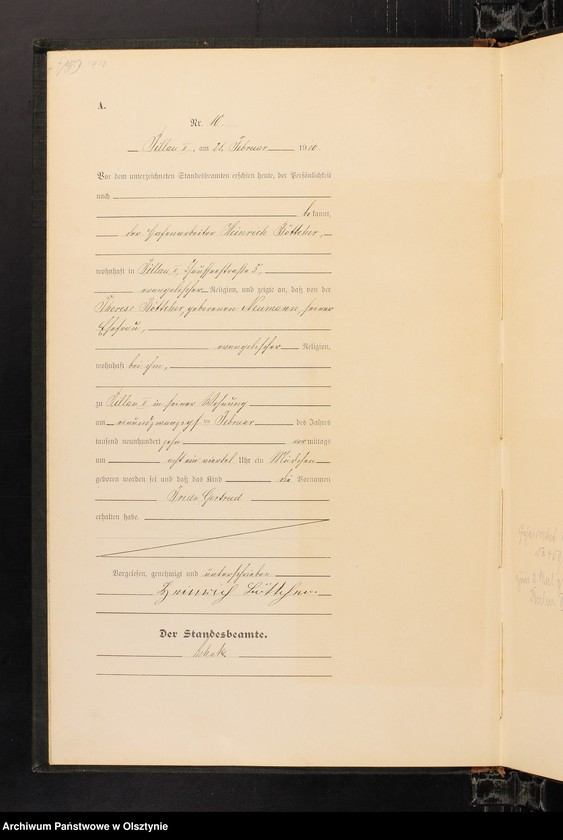 A.
Nr. 10.
Pillau I, am 21. Februar 1910.
Vor dem unterzeichneten Standesbeamten erschien heute, der Persönlichkeit
nach
bekannt,
der Hafenarbeiter Heinrich Böttcher,
wohnhaft in Pillau I, 5,
evangelischer Religion, und zeigte an, daß von der
Therese Böttcher, geborenen Neumann, seiner
Ehefrau,
evangelischer Religion,
wohnhaft bei ihm,
zu Pillau I in seiner Wohnung
am ten Februar des Jahres
tausend neunhundert zehn vormittags
um acht ein viertel Uhr ein Mädchen
geboren worden sei und daß das Kind die Vornamen
Frieda Gertrud
erhalten habe.
Vorgelesen, genehmigt und unterschrieben
Heinrich Böttcher.
Der Standesbeamte.
Archiwum Państwowe w Olsztynie